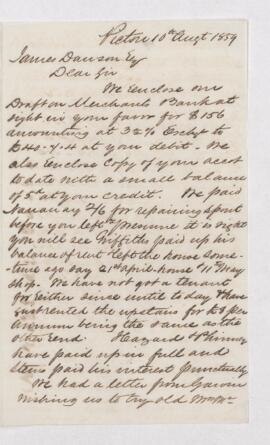 Pictou 10th Augt 1859
James Dawson Esq
Dear Sir
We Enclose our
Draft on Merchants Bank at
sight in your favor for $156
amounting at 3 2/2 % Exchg to
£40.7.4 at your debit. We
also Enclose Copy of your acct
to date with a small balance
of 5d at your credit. We paid
2/6 for repairing spout
before you left presume it is right
you will see Griffiths paid up his
balance of rent left the house some-
time ago say 21st april-house 11 May
shop. We have not got a tenant
for Either since until to day I have
just rented the upstairs for £8 per
annum being the same as the
other End Hazard
have paid up in full and
paid his interest punctually
We had a letter from
wishing us to try old Mr Mc